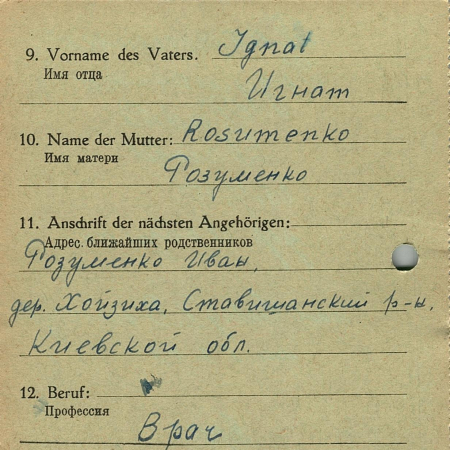 9. Vorname des Vaters. Ignat
Имя отца
Игнат
10. Name der Mutter: Rosumenko
Имя матери
Розуменко
11. Anschrift der nächsten Angehörigen:
Адрес ближайших родственников
Розуменко Иван,
дер. Хойзиха, Ставищанский р-н,
Киевской обл.
12. Beruf:
Профессия
Врач